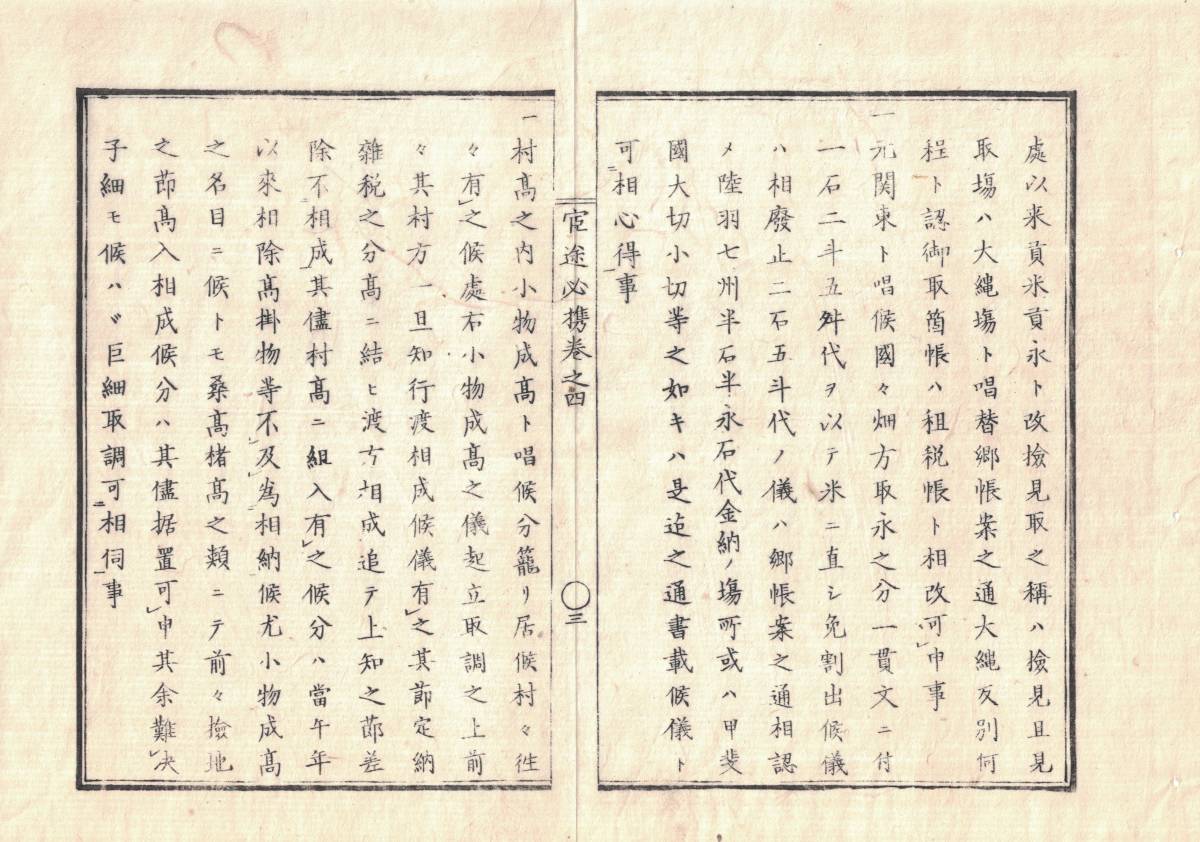 處以来貢米貢永ト改撿見取之稱ハ撿見且見
取塲ハ大縄塲ト唱替郷帳案之通大縄反別何
程ト認御取箇帳ハ租税帳ト相改可申事
一元関東ト唱候國々畑方取永之分一貫文ニ付
一石二斗五舛代ヲ以テ米ニ直シ免割出候儀
ハ相廢止二石五斗代ノ儀ハ郷帳案之通相認
メ陸羽七州半石半永石代金納ノ塲所或ハ甲斐
國大切小切等之如キハ是迠之通書載候儀ト
可相心得事
官途必携巻之四
〇三
一村髙之内小物成髙ト唱候分籠リ居候村々徃
々有之候處右小物成髙之儀起立取調之上前
々其村方一旦知行渡相成候儀有之其節定納
雜税之分髙ニ結ヒ渡方相成追テ上知之節差
除不相成其儘村髙ニ組入有之候分ハ當午年
以來相除髙掛物等不及為相納候尤小物成髙
之名目ニ候トモ桑髙楮髙之類ニテ前々撿地
之節髙入相成候分ハ其儘据置可申其余難决
子細モ候ハヾ巨細取調可相伺事